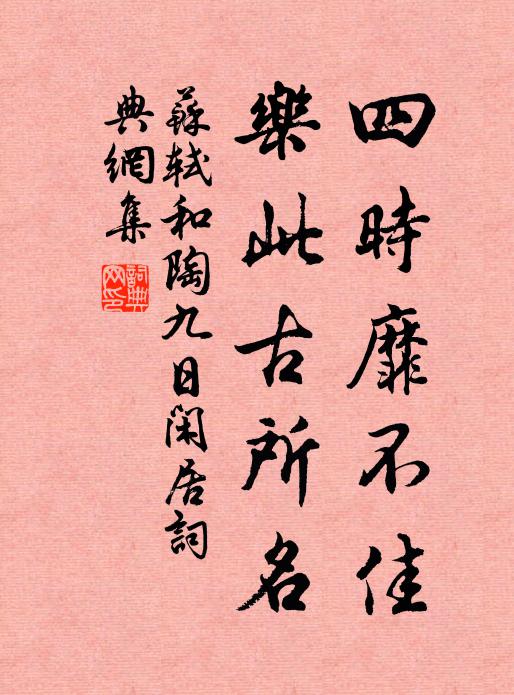 四時靡不佳
樂此古所名
蘇軾和陶九日閑居詞
典網集
詞典
网印